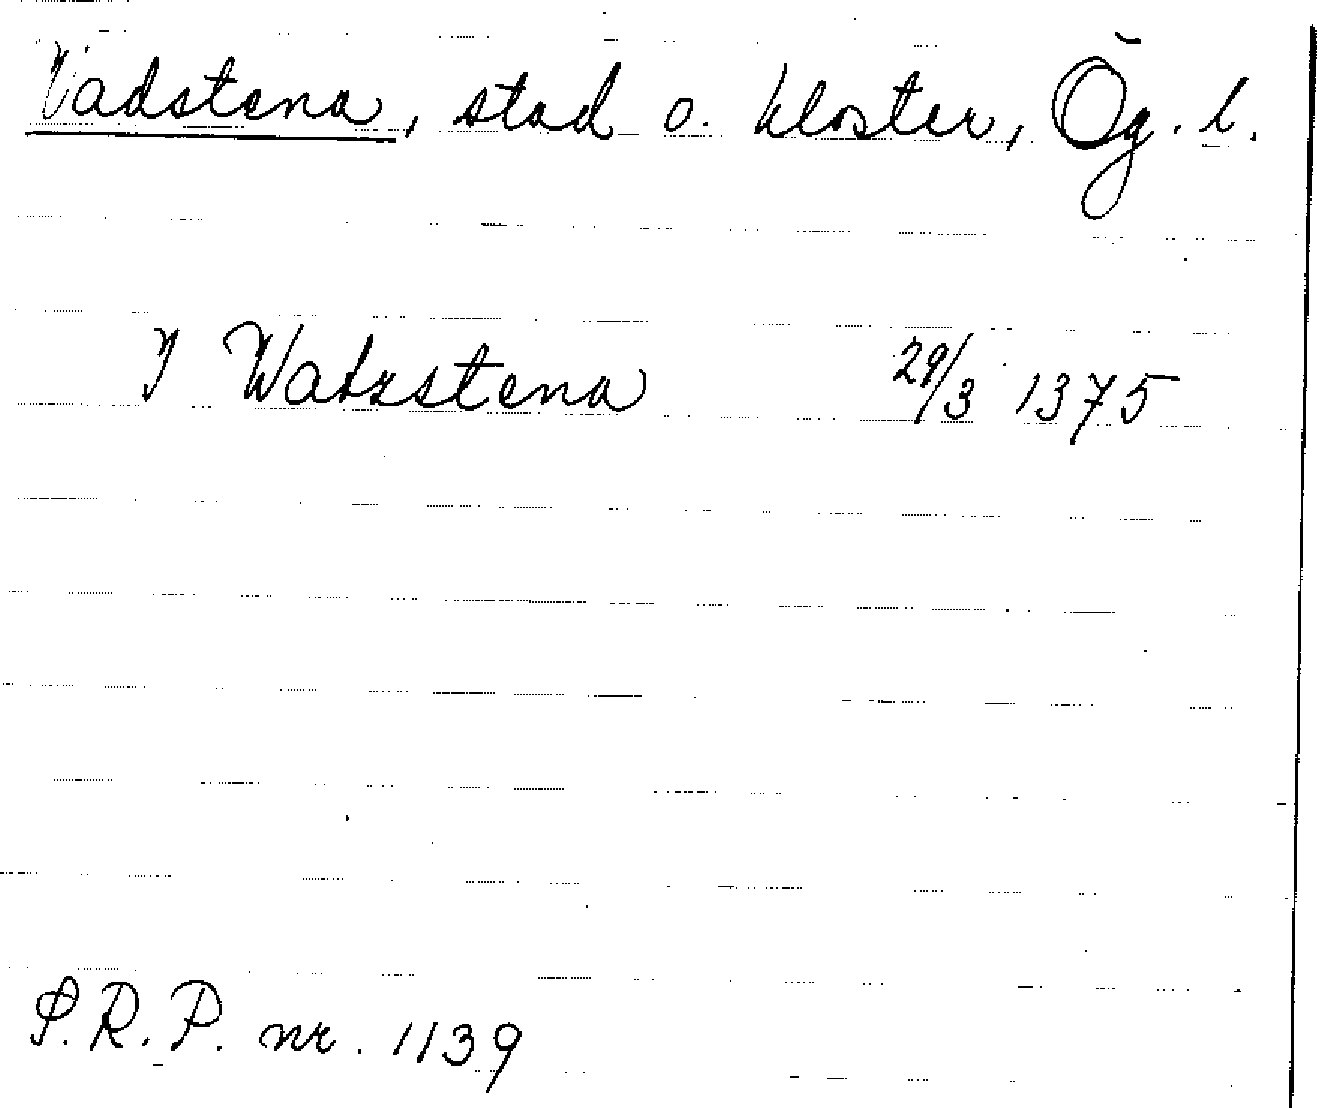 Vadstena, stad o. kloster, Ög. l.
I Watzstena 29/3 1375
S.R.P. nr. 1139